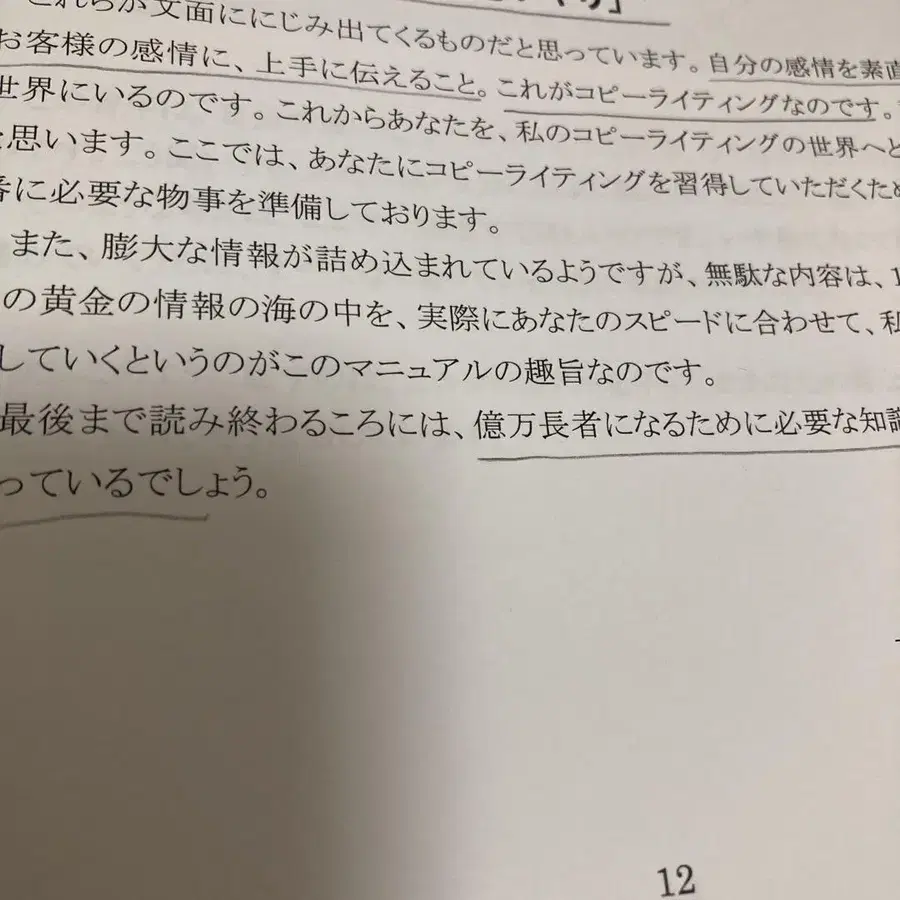 これらが文面ににじみ出てくるものだと思っています。自分の感情を素直
お客様の感情に、上手に伝えること。これがコピーライティングなのです。
世界にいるのです。これからあなたを、私のコピーライティングの世界へと
思います。ここでは、あなたにコピーライティングを習得していただくため
番に必要な物事を準備しております。
また、膨大な情報が詰め込まれているようですが、無駄な内容は、1
の黄金の情報の海の中を、実際にあなたのスピードに合わせて、私
していくというのがこのマニュアルの趣旨なのです。
最後まで読み終わるころには、億万長者になるために必要な知識
っているでしょう。
12